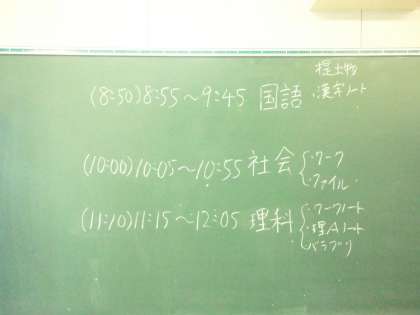 提出物
(8:50)8:55～9:45 国語 ・漢字ノート
(10:00)10:05～10:55 社会 ・ワーク
・ファイル
(11:10)11:15～12:05 理科 ・ワークノート
・理Aノート